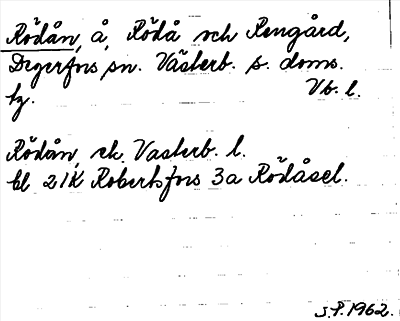 Rödån, å, Rödå och Rengård,
Degerfors sn. Västerb. s. doms.
hg. Vb. l.
Rödån, ek. Vasterb. l.
bl 21K Robertsfors 3a Rödåsel.
J.P. 1962.